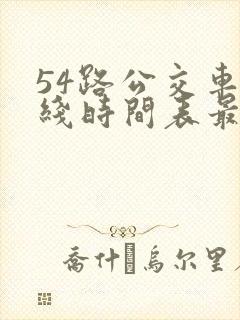 54路公交車
綫時間表最
喬什烏尔里